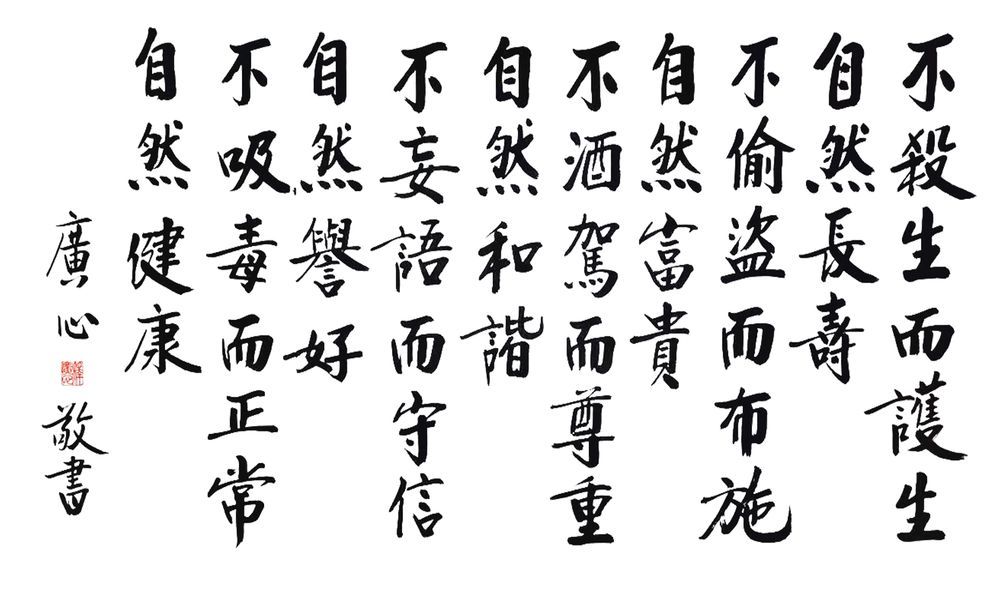 不殺生而護生
自然長壽
不偷盜而布施
自然富貴
不酒駕而尊重
自然和諧
不妄語而守信
自然譽好
不吸毒而正常
自然健康
廣心 敬書